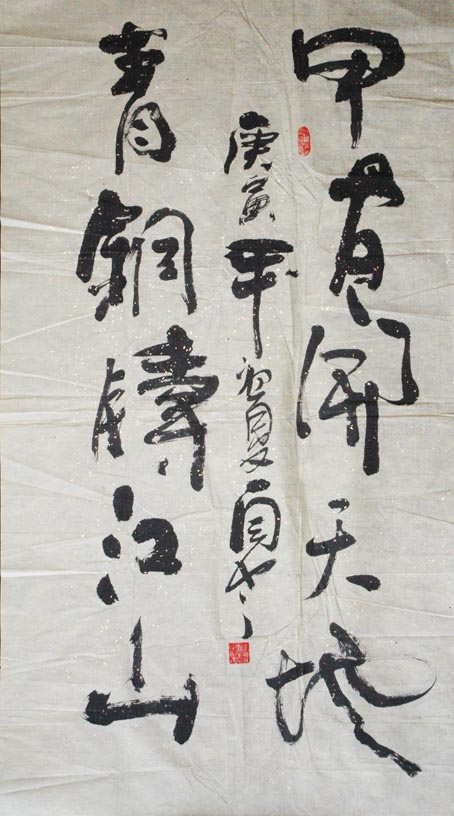 甲骨開天地
庚寅年初夏
青銅鑄江山